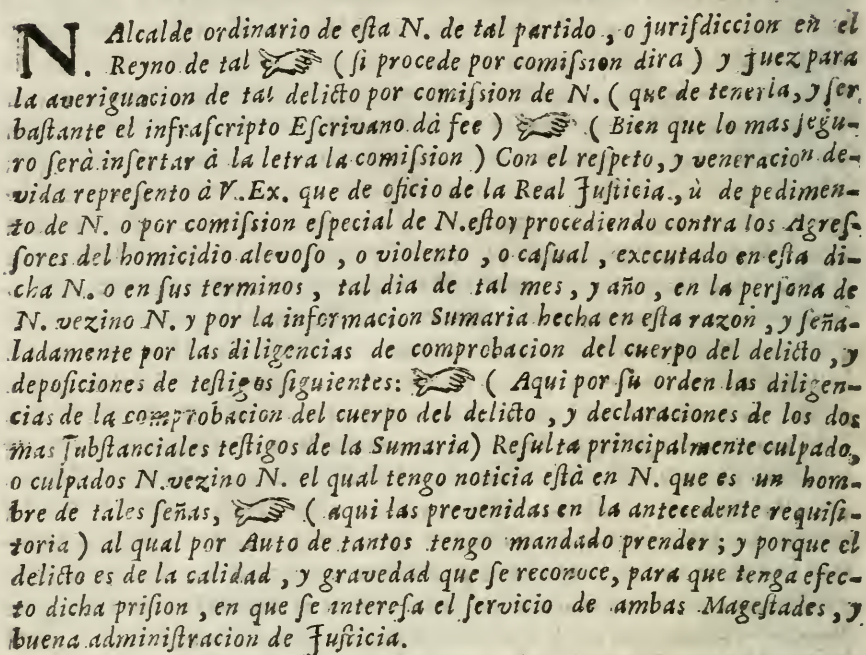 N. Alcalde ordinario de eſta N. de tal partido, o juriſdiccion en el
Reyno de tal ☞ (ſi procede por comiſsion dira) y juez para
la averiguacion de tal delicto por comiſsion de N. (que de tenerla, y ſer
baſtante el infraſcripto Eſcrivano dà fee) ☞ (Bien que lo mas ſegu-
ro ſerà inſertar à la letra la comiſsion) Con el reſpeto, y veneracion de-
vida repreſento à V. Ex. que de oficio de la Real Juſticia, ù de pedimen-
to de N. o por comiſsion eſpecial de N. eſtoy procediendo contra los Agreſ-
ſores del homicidio alevoſo, o violento, o caſual, executado en eſta di-
cha N. o en ſus terminos, tal dia de tal mes, y año, en la perſona de
N. vezino N. y por la informacion Sumaria hecha en eſta razon, y ſeña-
ladamente por las diligencias de comprobacion del cuerpo del delicto, y
depoſiciones de teſtigos ſiguientes: ☞ (Aqui por ſu orden las diligen-
cias de la comprobacion del cuerpo del delicto, y declaraciones de los dos
mas ſubſtanciales teſtigos de la Sumaria) Reſulta principalmente culpado,
o culpados N. vezino N. el qual tengo noticia eſtà en N. que es un hom-
bre de tales ſeñas, ☞ (aqui las prevenidas en la antecedente requiſi-
toria) al qual por Auto de tantos tengo mandado prender; y porque el
delicto es de la calidad, y gravedad que ſe reconoce, para que tenga efec-
to dicha priſion, en que ſe intereſa el ſervicio de ambas Mageſtades, y
buena adminiſtracion de Juſticia.